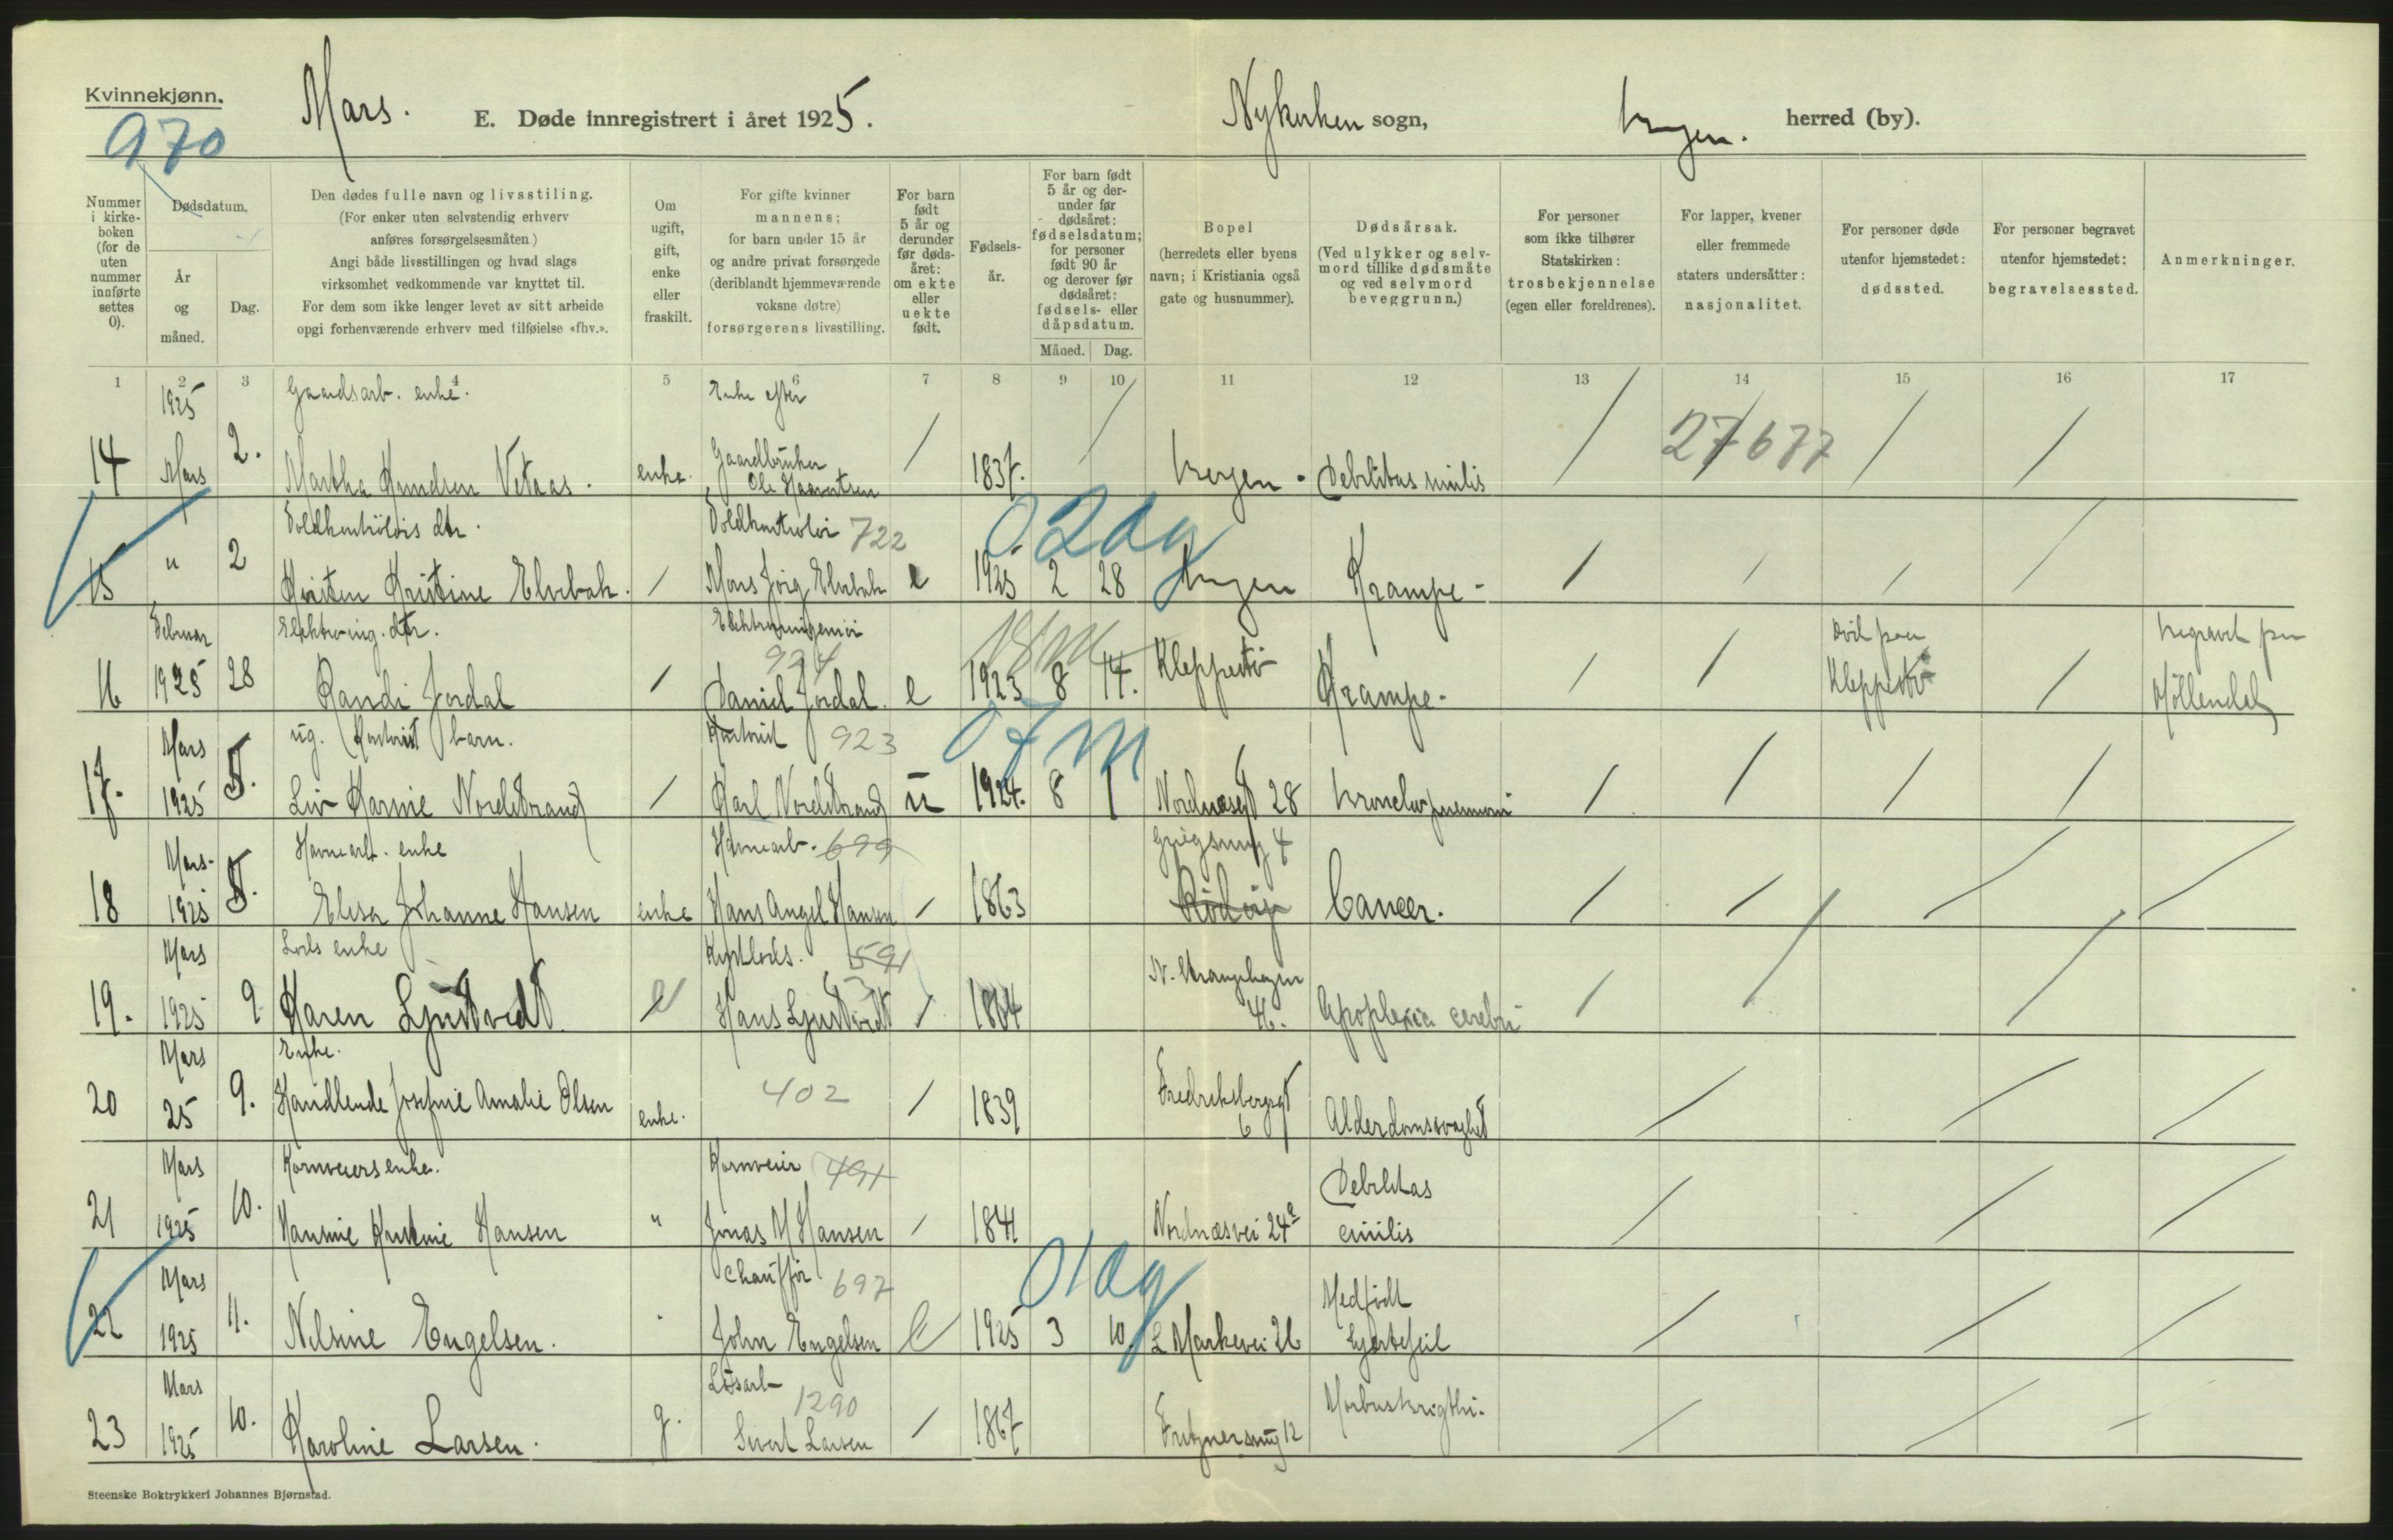 Kvinnekjønn.
970
Mars.
E. Døde innregistrert i året 1925.
Nykirken sogn,
herred (by).
Nummer i kirkeboken (for de uten nummer innførte settes 0).
Dødsdatum.
År og måned.
Dag.
Den dødes fulle navn og livsstilling.
(For enker uten selvstendig erhverv
anføres forsørgelsesmåten.)
Angi både livsstillingen og hvad slags
virksomhet vedkommende var knyttet til.
For dem som ikke lenger levet av sitt arbeide
opgi forhenværende erhverv med tilføielse «fhv.».
Om ugift, gift, enke eller fraskilt.
For gifte kvinner
mannens;
for barn under 15 år
og andre privat forsørgede
(deriblandt hjemmeværende
voksne døtre)
forsørgerens livsstilling.
For barn født 5 år og derunder før dødsåret: om ekte eller uekte født.
Fødselsår.
For barn født 5 år og derunder før dødsåret: fødselsdatum; for personer født 90 år og derover før dødsåret: fødsels- eller dåpsdatum.
Måned.
Dag.
Bopel
(herredets eller byens
navn; i Kristiania også
gate og husnummer).
Dødsårsak.
(Ved ulykker og selvmord tillike dødsmåte og ved selvmord beveggrunn.)
For personer
som ikke tilhører
Statskirken:
trosbekjennelse
(egen eller foreldrenes).
For lapper, kvener
eller fremmede
staters undersåtter:
nasjonalitet.
For personer døde
utenfor hjemstedet:
dødssted.
For personer begravet
utenfor hjemstedet:
begravelsessted.
Anmerkninger.
1 2 3 4 5 6 7 8 9 10 11 12 13 14 15 16 17
1925 Gaardsarb. enke. Enke efter
14 Mars 2. Martha Knudsen Vetaas. enke. Gaardbruker Ole / 1837. / Debilitas / 27677 / /
Toldkontrolørs dtr. Toldkontrolør 722 02dg
15 " 2 Kirsten Kristine Elvebak. / Mons Jørg. Elvebak e 1925 2 28 Krampe - / / / /
Februar Elektro-ing. dtr. Elektroingeniør 924 18m
16 1925 28 Randi Jordal / Daniel Jordal. e 1923 8 14. Kleppestø Krampe. / / Død paa Kleppestø / begravet paa Møllendal
Mars ug. barn. 923 07m
17. 1925 5. Liv Karine Nordstrand / Karl Nordstrand u 1924. 8 1 Nordnæsgt 28 / / / /
Mars. Havnearb. enke Havnearb. 699 4
18 1925 5. Elisa Johanne Hansen enke Hans Angel Hansen / 1863 Cancer. / / / / /
Mars Lods enke Kystlods. 591 N. Strangehagen
19. 1925 9 Karen Ljustvedt e Hans Ljustvedt / 1864 46. Apoplexia cerebri / / / /
Mars Enke.
20 25 9. Handlende Josefine Amalie Olsen enke. 402 / 1839 Fredriksbergsgt 6 Alderdomssvaghet / / /
Mars Kornveiersenke. Kornveier 491 Debilitas
21 1925 10. Hansine Kristine Hansen " Jonas M Hansen / 1841 Nordnæsvei 24a / / /
Mars Chauffør 697 01dg Medfødt
22 1925 11. Nilsine Engelsen. " John Engelsen e 1925 3 10. L Markevei 26 hjertefeil / / /
Mars Løsarb 1290
23 1925 10. Karoline Larsen. g. Sivert Larsen / 1867 12 / / /
Steenske Boktrykkeri Johannes Bjørnstad.